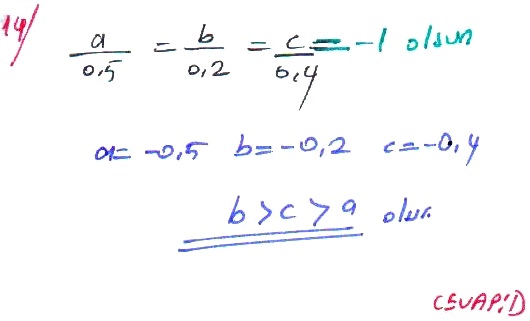 14/
a/0,5 = b/0,2 = c/0,4 = -1 olsun
a= -0,5 b= -0,2 c= -0,4
b > c > a olur.
CEVAP: D